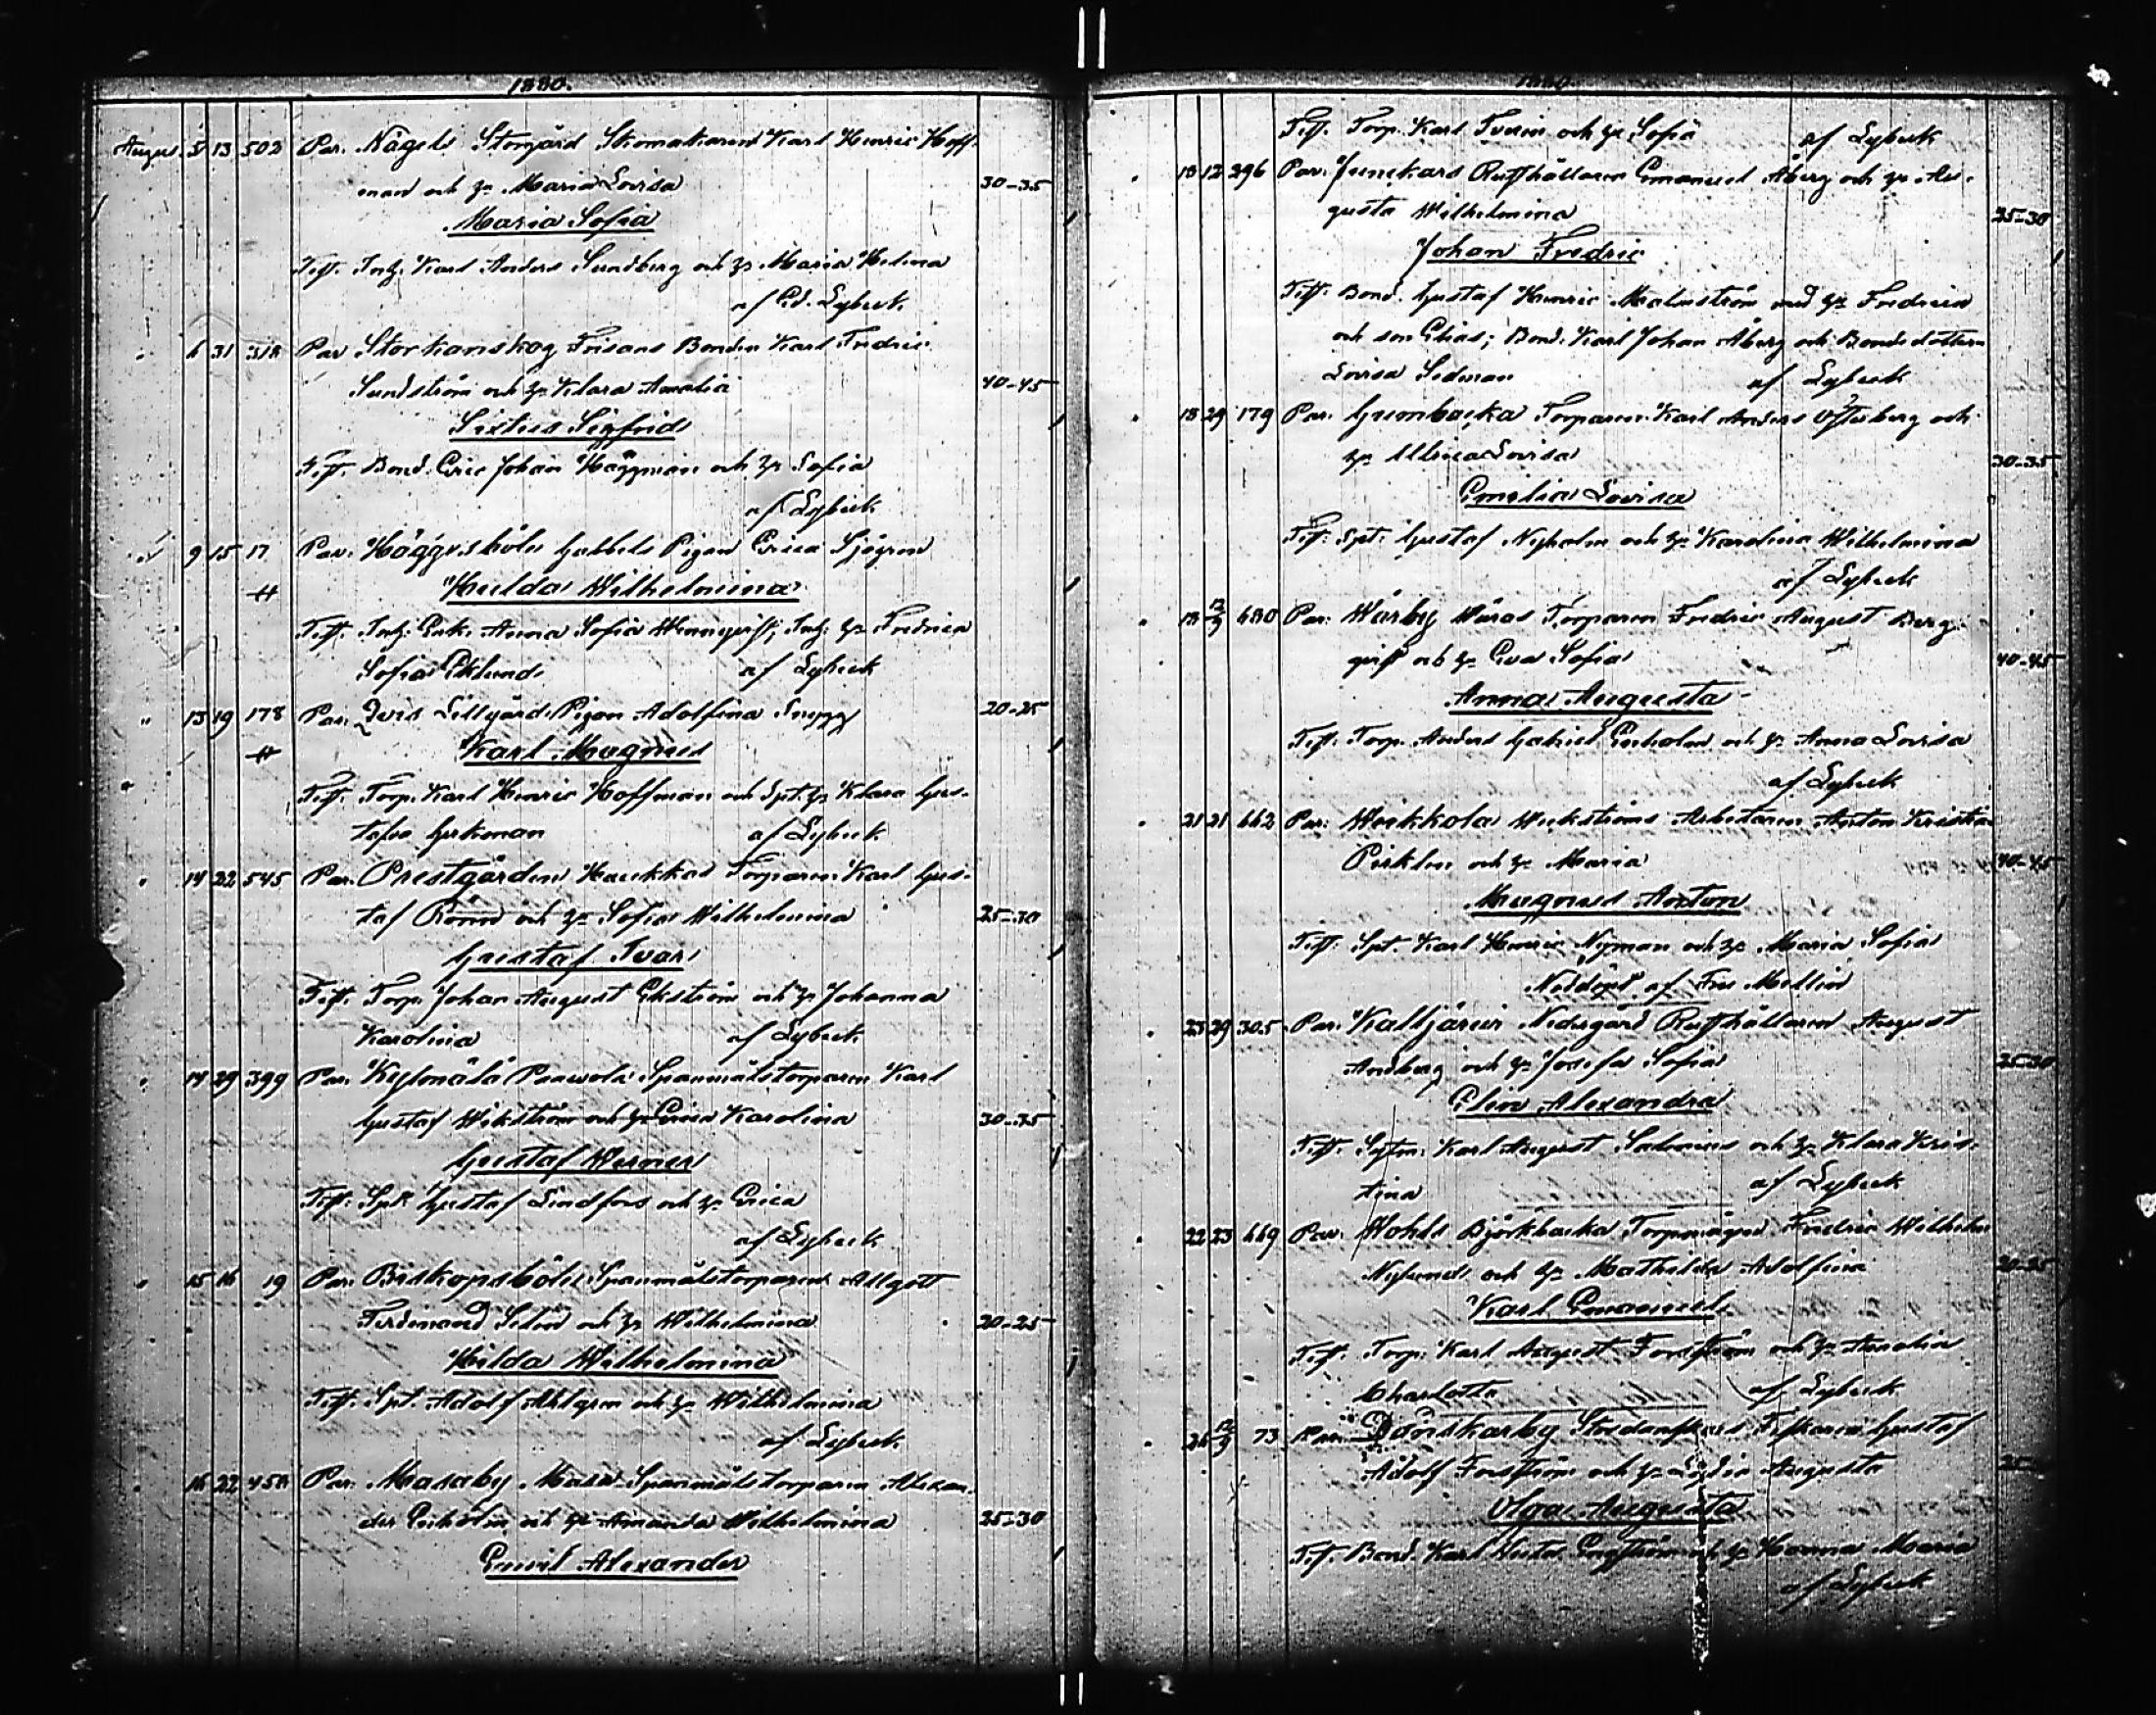 1880.
Augus. 5 13 502 Par. Någels Storgård Skomakaren Karl Henric Hoff-
man och h:u Maria Lovisa 30-35
Maria Sofia
Test. Inh. Karl Anders Sundberg och h:u Maria Helena
af Ed. Lybeck
6 31 318 Par Storkanskog Frisans Bonden Karl Fredric
Sundström och h:u Klara Amalia 40-45
Sixtus Sigfrid
Test. Bond. Eric Johan Häggman och h:u Sofia
af Lybeck
" 9 15 17 Par. Häggvsböle Gabbels Pigan Erica Sjögren
# Hulda Wilhelmina
Test. Inh. Enk. Anna Sofia Wennqvist; Inh. h:u Fredrica
Sofia Eklund. af Lybeck
" 13 19 178 Par. Lillgård Pigan Adolfina Snygg 20-25
# Karl Magnus
Test. Torp. Karl Henric Hoffman och Spt. h:u Klara Gus-
tafva Grekman af Lybeck
" 14 22 545 Par. Prestgården Haukkas Torparen Karl Gus-
taf Rönn och h:u Sofia Wilhelmina 25-30
Gustaf Ivar
Test. Torp. Johan August Ekström och h:u Johanna
Karolina af Lybeck
" 14 29 399 Par. Kylmälä Paavola Spanmålstorparen Karl
Gustaf Wikström och h:u Erica Karolina 30-35
Gustaf Werner
Test: Spt. Gustaf Lindfors och h:u Erica
af Lybeck
" 15 16 19 Par. Biskopsböle Spanmålstorparen Allgott
Ferdinand Selin och h:u Wilhelmina 20-25
Hilda Wilhelmina
Test. Spt. Adolf Ahlgren och h:u Wilhelmina
af Lybeck
" 16 22 458 Par. Masaby Masas Spanmålstorparen Alexan-
der Enholm och h:u Amanda Wilhelmina 25-30
Emil Alexander
1880.
Test. Torp. Karl och h:u Sofia af Lybeck
" 18 12 296 Par. Junckars Rusthållaren Emanuel Åberg och h:u Au-
gusta Wilhelmina 25-30
Johan Fredric
Test: Bond. Gustaf Henric Malmström med h:u Fredrica
och son Elias; Bond. Karl Johan Åberg och Bondedottern
Lovisa Sedman af Lybeck
" 18 29 179 Par. Gumbacka Torparen Karl Anders Österberg och
h:u Ullrica Lovisa 30-35
Emilia Lovisa
Test: Spt. Gustaf Nyholm och h:u Karolina Wilhelmina
af Lybeck
" 18 12/9 680 Par. Wårby Wåras Torparen Fredric August Berg-
qvist och h:u Eva Sofia 40-45
Anna Augusta
Test. Torp. Anders Gabriel Enholm och h:u Anna Lovisa
af Lybeck
" 21 21 662 Par. Weikkola Weckströms Arbetaren Anton Kristian
Pirklen och h:u Maria 40-45
Magnus Anton
Test. Spt. Karl Henric Nyman och h:u Maria Sofia
Nöddöpt af Fru Mellin
" 23 29 305 Par. Kaltjärvi Nedergård Rusthållaren August
Andberg och h:u Josefa Sofia 25-30
Elin Alexandra
Test. Sytn. Karl August Salenius och h:u Klara Kris-
tina af Lybeck
" 22 23 669 Par. Wohls Björkbacka Torpmågen Fredric Wilhelm
Nylund och h:u Mathilda Adolfina 20-25
Karl Emanuel
Test. Torp. Karl August Forsström och h:u Amalia
Charlotta af Lybeck
" 26 12/9 73 Par. Danskarby Stordanskars Fiskaren Gustaf
Adolf Forsström och h:u Lydia Augusta 25-
Olga Augusta
Test. Bond. Karl Engström och h:u Hanna Maria
af Lybeck